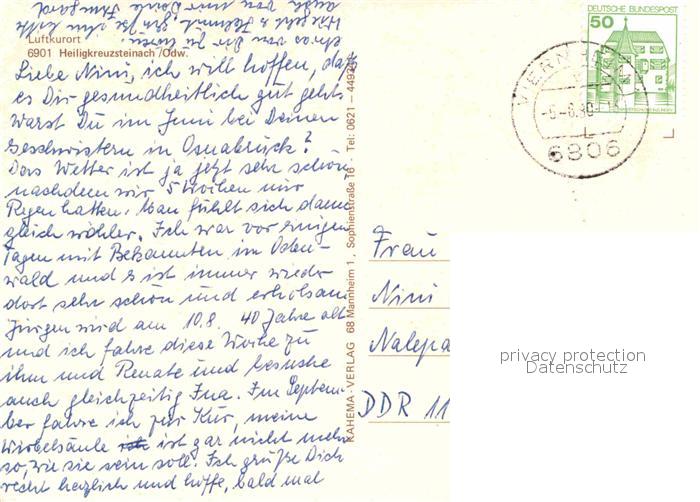 Luftkurort
6901 Heiligkreuzsteinach/Odw.
Liebe Nini, ich will hoffen, daß
es Dir gesundheitlich gut geht.
warst Du im Juni bei Deinen
Geschwistern in Osnabrück?
Das Wetter ist ja jetzt sehr schön
nachdem wir 5 Wochen nur
Regen hatten. Man fühlt sich dann
gleich wohler. Ich war vor einigen
Tagen mit Bekannten im Oden-
wald und es ist immer wieder
dort sehr schön und erholsam
Jürgen wird am 10.8. 40 Jahre alt
und ich fahre diese Woche zu
ihm und Renate und besuche
auch gleichzeitig Ina. Im Septem-
ber fahre ich zur Kur, meine
Wirbelsäule ist gar nicht mehr
so, wie sie sein soll. Ich grüße Dich
recht herzlich und hoffe, bald mal
etwas von Dir zu hören.
KAHEMA-VERLAG 68 Mannheim 1, Sophienstraße 16 · Tel: 0621 -
DEUTSCHE BUNDESPOST
50
6806
Frau
Nini
Nalepa
DDR 11
privacy protection
Datenschutz